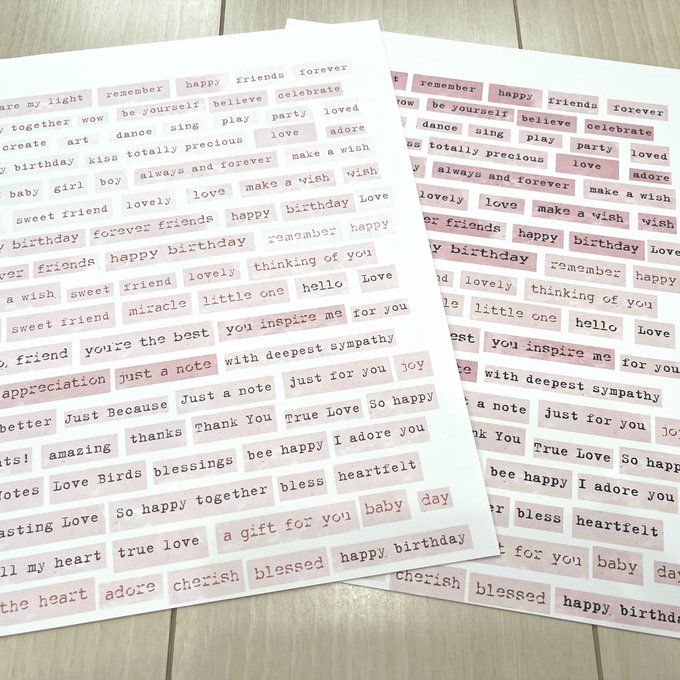 are my light remember happy friends forever
together wow be yourself believe celebrate
create art dance sing play party loved
birthday kiss totally precious love adore
baby girl boy always and forever make a wish
sweet friend lovely love make a wish wish
birthday forever friends happy birthday Love
friends happy birthday remember happy
a wish sweet friend lovely thinking of you
sweet friend miracle little one hello Love
friend you're the best you inspire me for you
appreciation just a note with deepest sympathy
better Just Because Just a note just for you joy
amazing thanks Thank You True Love So happy
Love Birds blessings bee happy I adore you
Love So happy together bless heartfelt
my heart true love a gift for you baby day
the heart adore cherish blessed happy birthday
remember happy friends forever
wow be yourself believe celebrate
dance sing play party loved
totally precious love adore
always and forever make a wish
lovely love make a wish wish
friends happy birthday Love
birthday remember happy
lovely thinking of you
little one hello Love
you inspire me for you
with deepest sympathy
a note just for you joy
You True Love So happy
bee happy I adore you
bless heartfelt
for you baby day
cherish blessed happy birthday